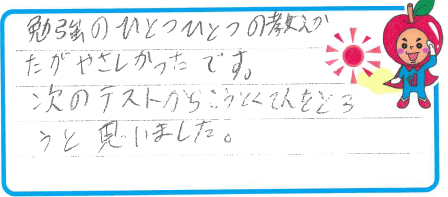 勉強のひとつひとつの教えか
たがやさしかったです。
次のテストからこうとくてんをとろ
うと思いました。